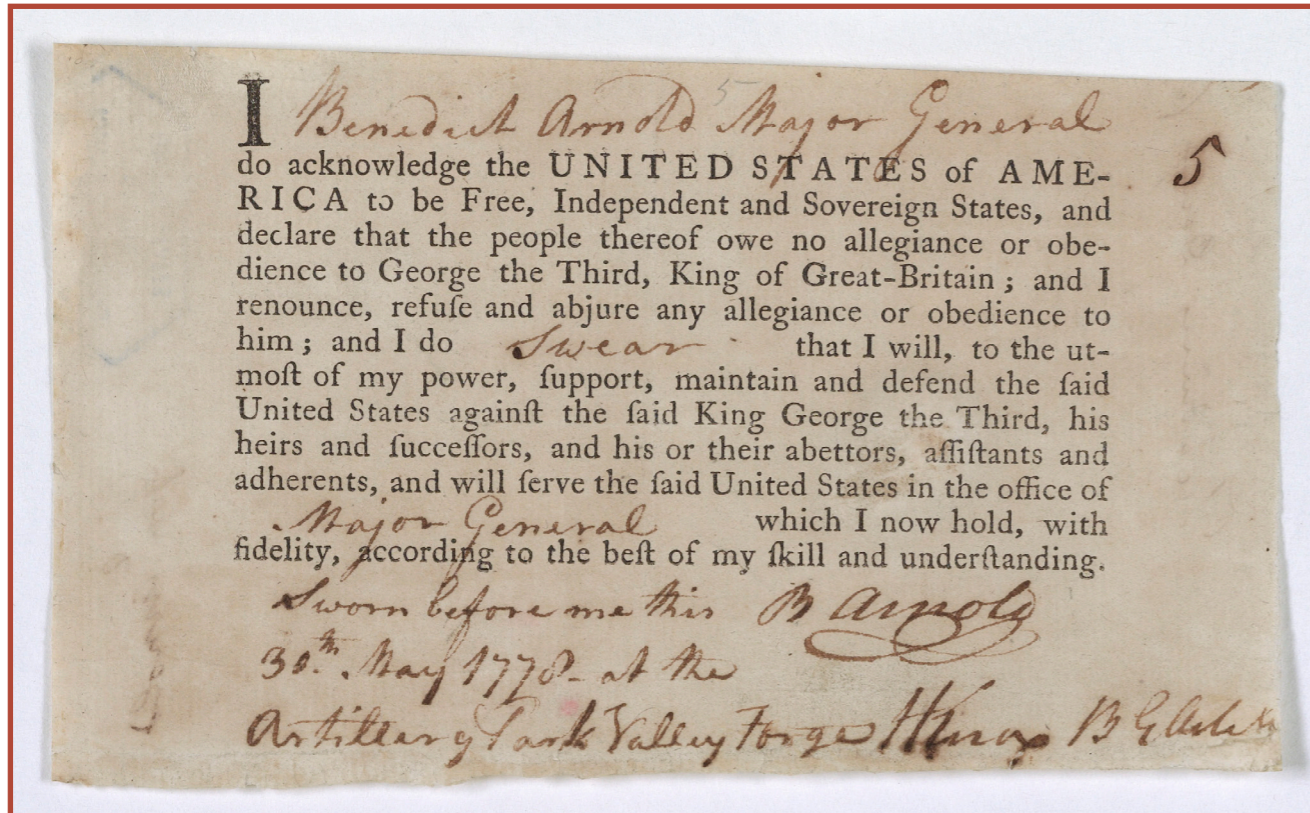 I Benedict Arnold Major General
do acknowledge the UNITED STATES of AME-
RICA to be Free, Independent and Sovereign States, and
declare that the people thereof owe no allegiance or obe-
dience to George the Third, King of Great-Britain ; and I
renounce, refuſe and abjure any allegiance or obedience to
him ; and I do Swear that I will, to the ut-
moſt of my power, ſupport, maintain and defend the ſaid
United States againſt the ſaid King George the Third, his
heirs and ſucceſſors, and his or their abettors, aſſiſtants and
adherents, and will ſerve the ſaid United States in the office of
Major General which I now hold, with
fidelity, according to the beſt of my ſkill and underſtanding.
Sworn before me this B Arnold
30th. May 1778 - at the
Artillery Park Valley Forge HKnox B G
5
5